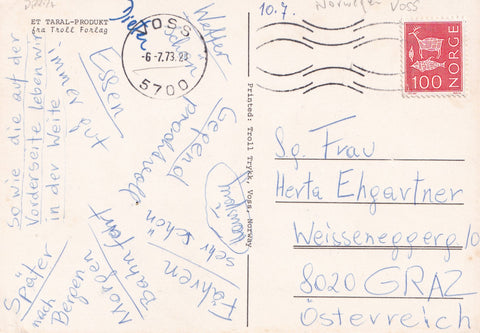 ET TARAL-PRODUKT
fra Troll Forlag
Dieter
VOSS
-6-7.73.
5700
10.7.
Norwegen
Voss
100 NORGE
So wie die auf der
Vorderseite leben wir
in der Weite
Essen
Wetter
schön
Gegend
prachtvoll
Fähren
sehr schön
Morgen
Bahnfahrt
Später
nach
Bergen
Printed: Troll Trykk, Voss, Norway
Sg. Frau
Herta Ehgartner
Weisseneggerg/0
8020 GRAZ
Österreich